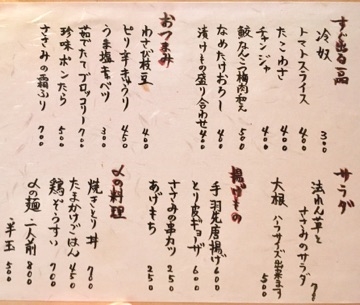 すぐ出る一品
冷奴 300
トマトスライス 400
たこわさ 400
チャンジャ 400
鮫なんこつ梅肉和え 500
なめたけおろし 400
漬けもの盛り合わせ 600
おつまみ
わさび枝豆 400
ピリ辛きゅうり 450
うま塩キャベツ 300
茹でたてブロッコリー 700
珍味ポンたら 500
ささみの霜ふり 700
サラダ
法れん草と
ささみのサラダ
大根 ハーフサイズ出来ます 500
揚げもの
手羽先唐揚げ 600
とり皮ギョーザ 600
ささみの串カツ 250
あげもち 250
〆の料理
焼きとり丼 700
たまかけごはん 450
鶏ぞうすい 700
〆の麺 一人前 800
半玉 500